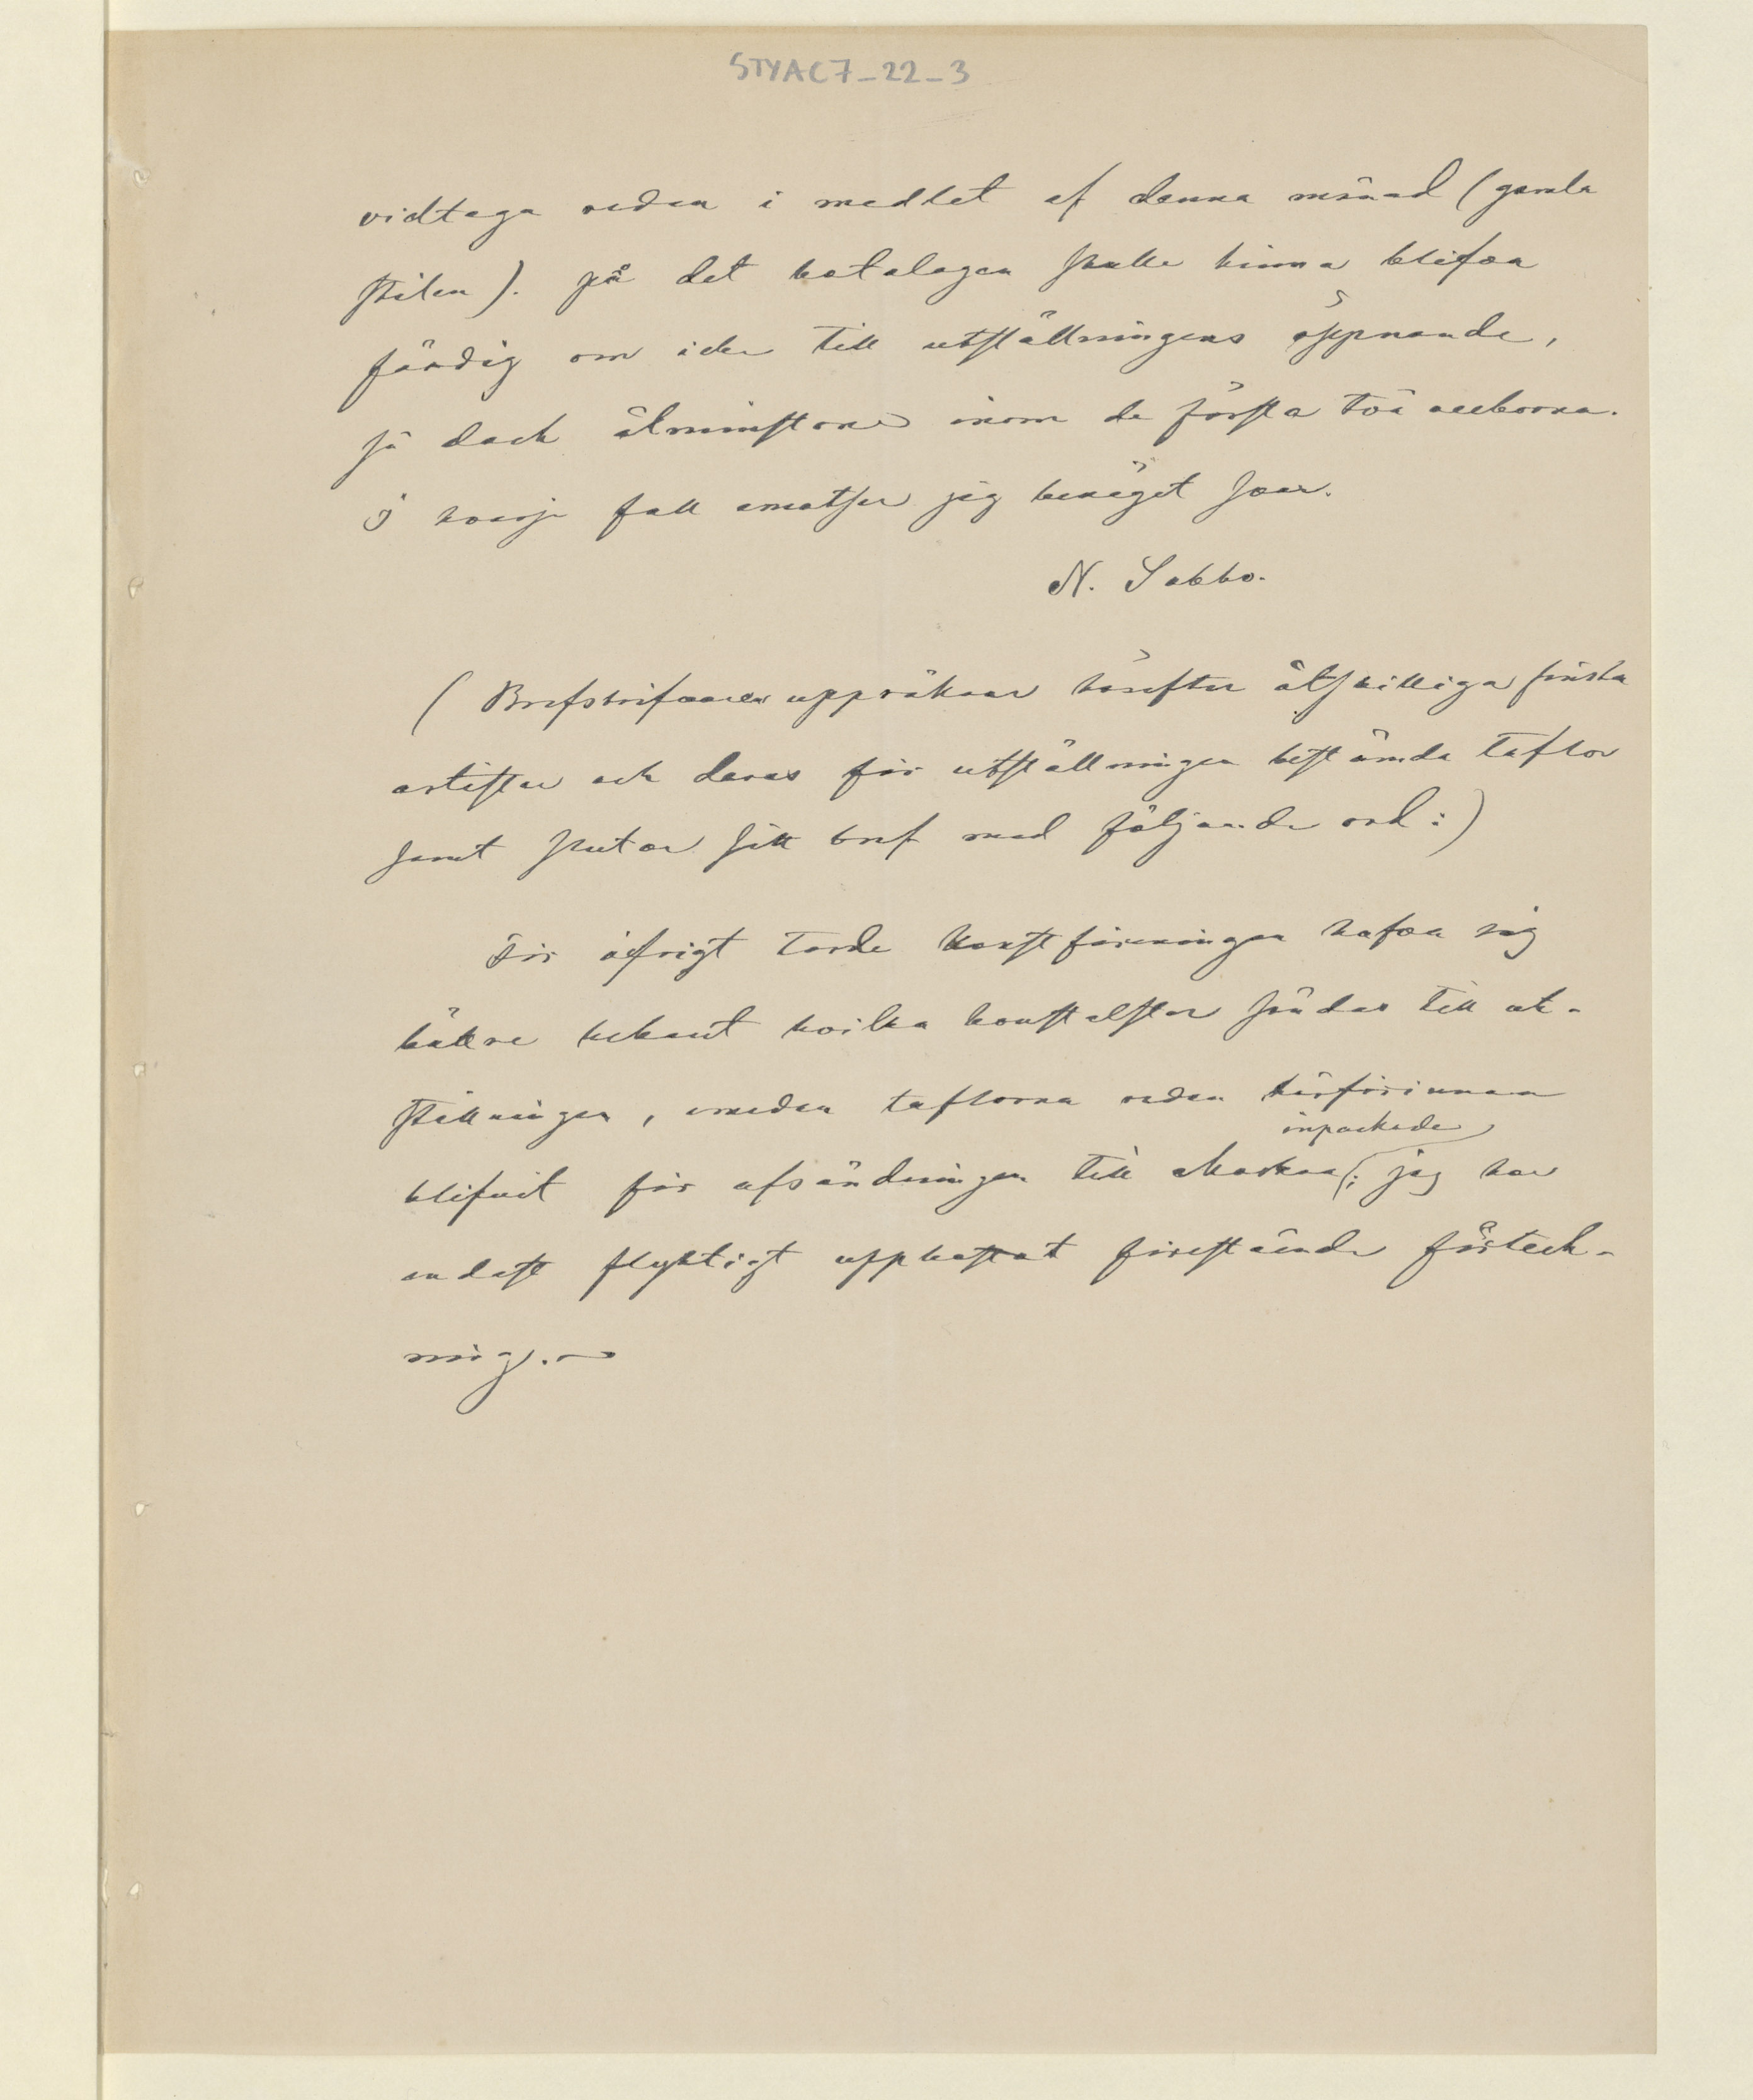 STYAC7_22_3
vidtaga redan i medlet af denna månad (gamla
stilen). på det katalogen skulle hinna blifva
färdig om icke till utställningens öppnande,
så dock åtminstone inom de första två veckorna.
I hvarje fall emotser jag benäget svar.
N. Sabko.
( Brefskrifvaren uppräknar härefter åtskilliga finska
artister och deras för utställningen bestämda taflor
samt slutar sitt bref med följande ord:)
För öfrigt torde konstföreningen hafva sig
bättre bekant hvilka konstalster sändas till ut-
ställningen, emedan taflorna redan härförinnan
inpackade
blifvit för afsändningen till Moskva; jag har
endast flyktigt uppkastat förestående förteck-
ning.—